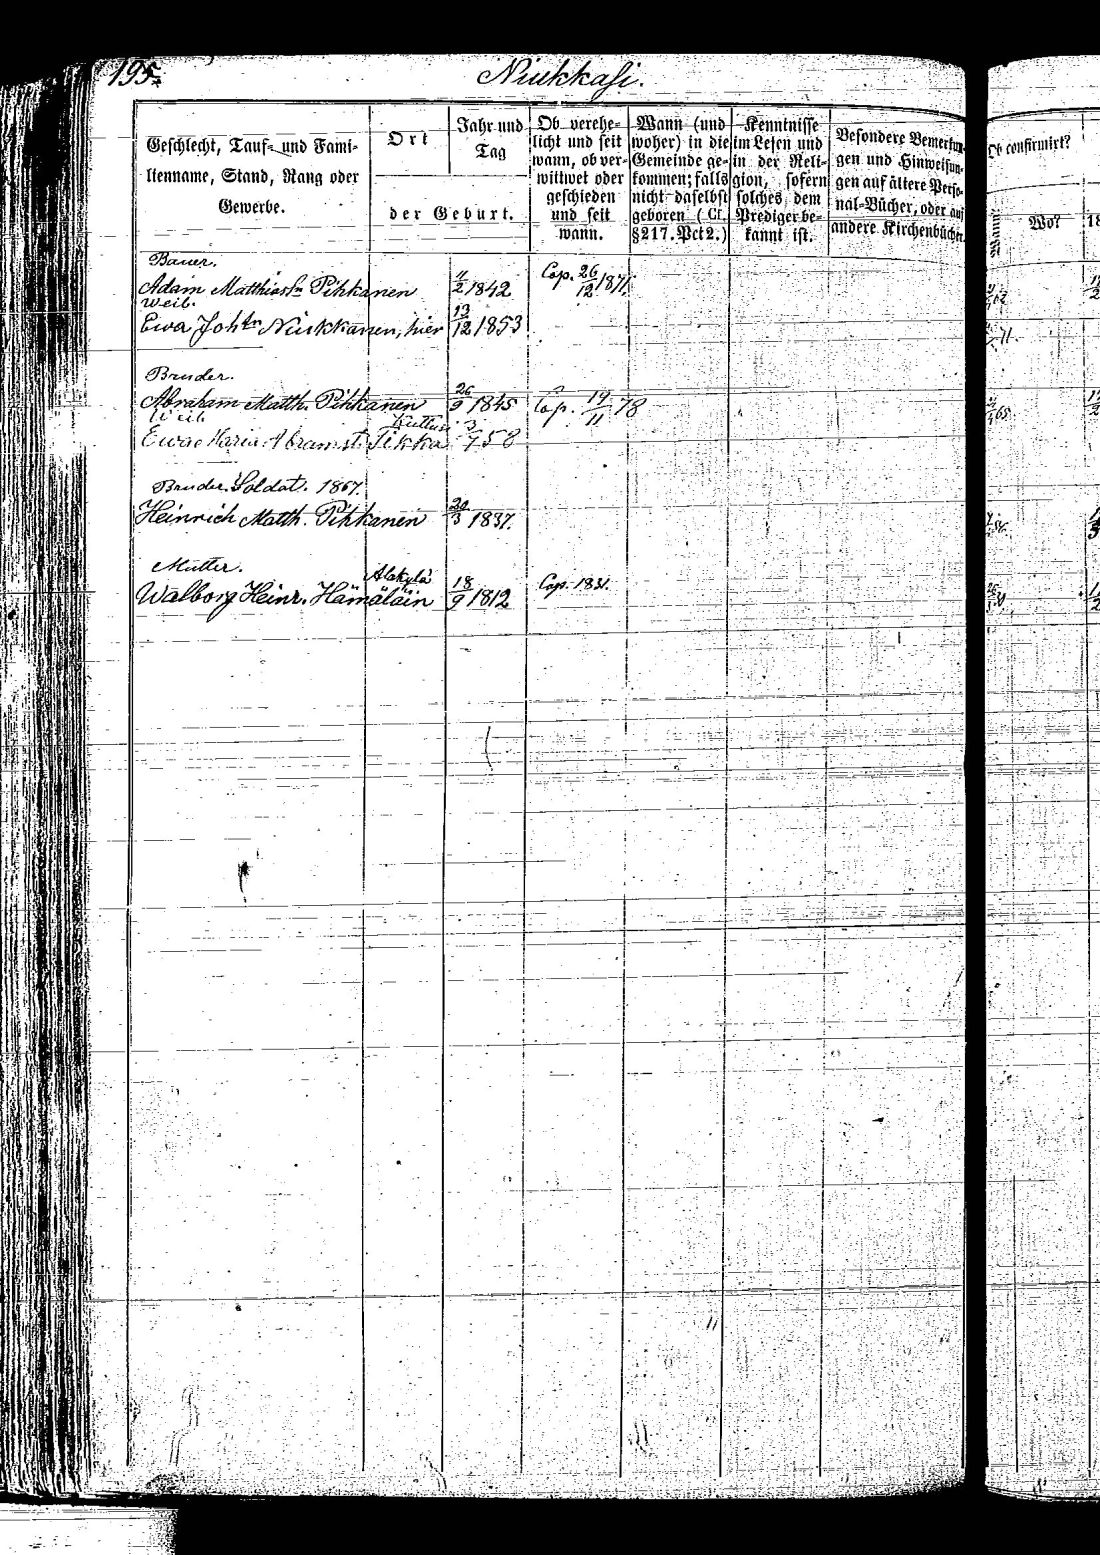 195.
Niukkasi.
Geschlecht, Tauf- und Fami-
lienname, Stand, Rang oder
Gewerbe.
Ort
Jahr und
Tag
der Geburt.
Ob verehe-
licht und seit
wann, ob ver-
wittwet oder
geschieden
und seit
wann.
Wann (und
woher) in die
Gemeinde ge-
kommen; falls
nicht daselbst
geboren (Cf.
§217. Pct 2.)
Kenntnisse
im Lesen und
in der Reli-
gion, sofern
solches dem
Prediger be-
kannt ist.
Besondere Bemerkun-
gen und Hinweisun-
gen auf ältere Perso-
nal-Bücher, oder auf
andere Kirchenbücher.
Ob confirmirt?
Wann
Wo?
18
Bauer.
Adam Matthiassn Pihkanen 11/2 1842 Cop. 26/12 1871.
Weib.
Ewa Johtr Niukkanen, hier 13/12 1853
Bruder.
Abraham Matth. Pihkanen 26/9 1845 Cop. 19/11 78
Weib
Ewa Maria Abramst. Sikka 3/7 58
Bruder. Soldat. 1867.
Heinrich Matth. Pihkanen 20/3 1837.
Mutter.
Alakylä
Walborg Heinr. Hämäläin 18/9 1812 Cop. 1831.